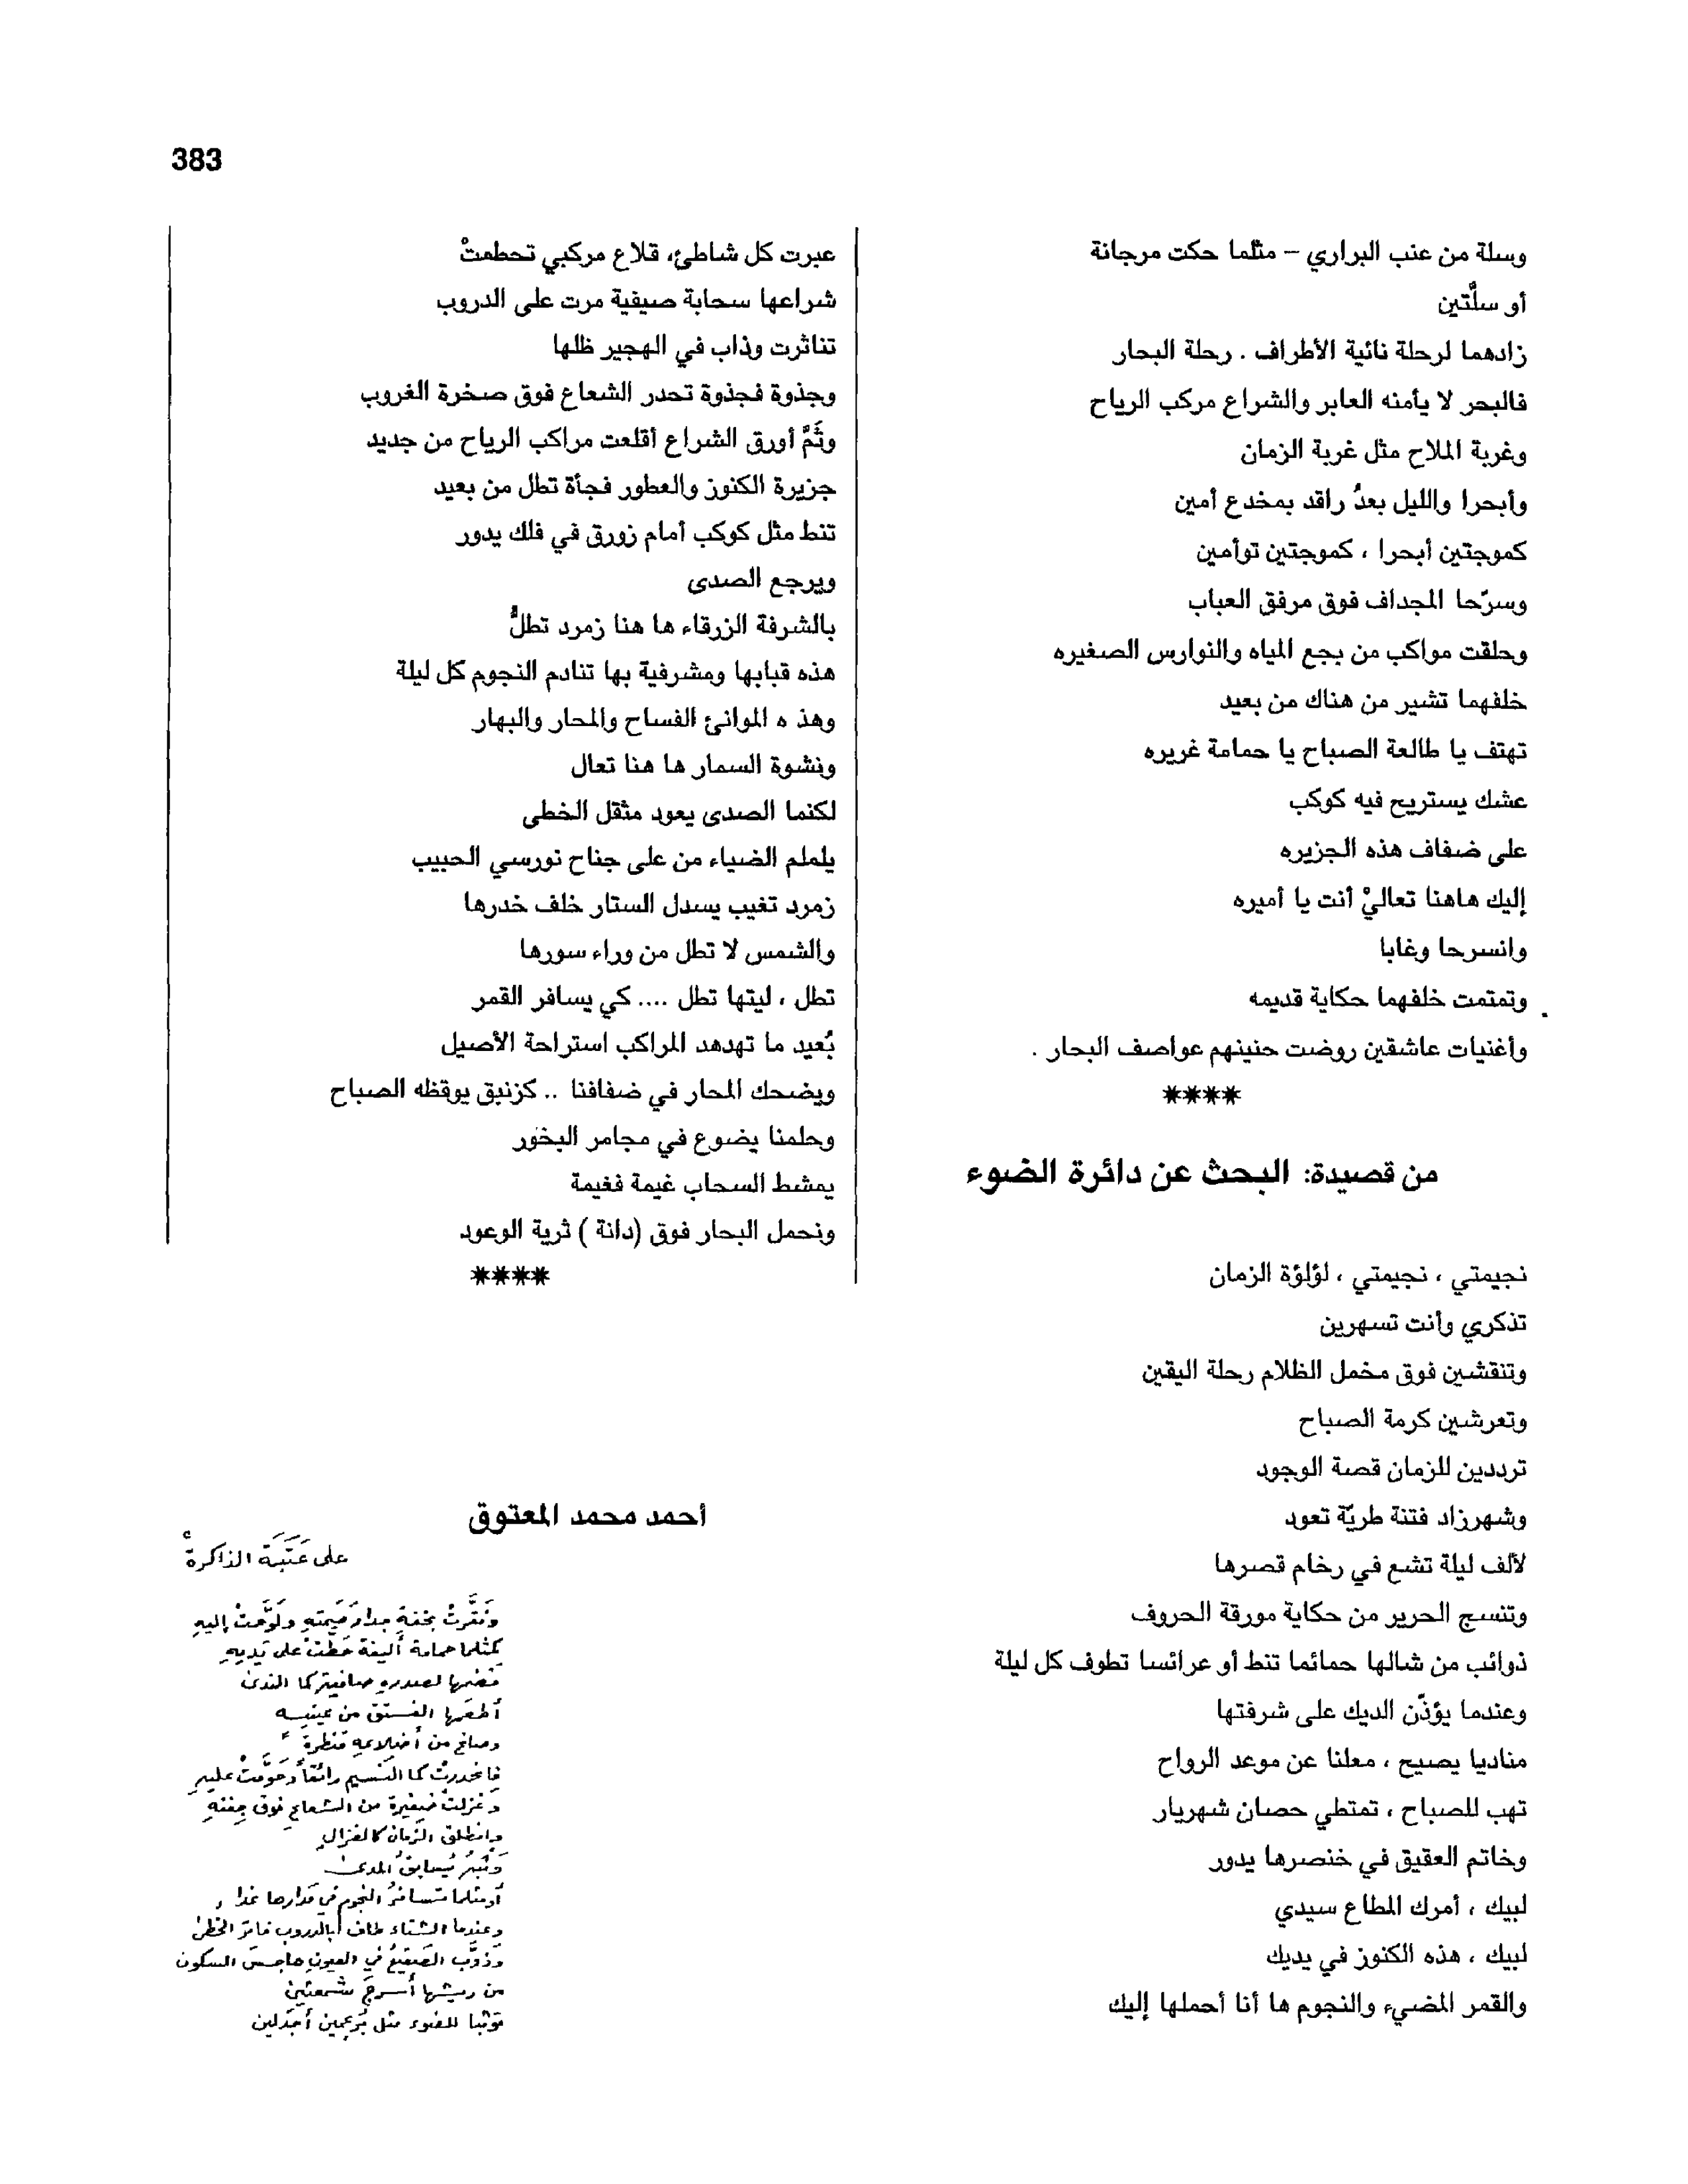 383
وسلة من عنب البراري – مثلما حكت مرجانة
أو سلَّتين
زادهما لرحلة نائية الأطراف . رحلة البحار
فالبحر لا يأمنه العابر والشراع مركب الرياح
وغربة الملاح مثل غربة الزمان
وأبحرا والليل بعدُ راقد بمخدع أمين
كموجتين أبحرا ، كموجتين توأمين
وسرّحا المجداف فوق مرفق العباب
وحلقت مواكب من بجع المياه والنوارس الصغيره
خلفهما تشير من هناك من بعيد
تهتف يا طالعة الصباح يا حمامة غريره
عشك يستريح فيه كوكب
على ضفاف هذه الجزيره
إليك هاهنا تعاليْ أنت يا أميره
وانسرحا وغابا
وتمتمت خلفهما حكاية قديمه
وأغنيات عاشقين روضت حنينهم عواصف البحار .
****
من قصيدة: البحث عن دائرة الضوء
نجيمتي ، نجيمتي ، لؤلؤة الزمان
تذكري وأنت تسهرين
وتنقشين فوق مخمل الظلام رحلة اليقين
وتعرشين كرمة الصباح
ترددين للزمان قصة الوجود
وشهرزاد فتنة طريّة تعود
لألف ليلة تشع في رخام قصرها
وتنسج الحرير من حكاية مورقة الحروف
ذوائب من شالها حمائما تنط أو عرائسا تطوف كل ليلة
وعندما يؤذّن الديك على شرفتها
مناديا يصيح ، معلنا عن موعد الرواح
تهب للصباح ، تمتطي حصان شهريار
وخاتم العقيق في خنصرها يدور
لبيك ، أمرك المطاع سيدي
لبيك ، هذه الكنوز في يديك
والقمر المضيء والنجوم ها أنا أحملها إليك
عبرت كل شاطئ، قلاع مركبي تحطمتْ
شراعها سحابة صيفية مرت على الدروب
تناثرت وذاب في الهجير ظلها
وجذوة فجذوة تحدر الشعاع فوق صخرة الغروب
وثَمَّ أورق الشراع أقلعت مراكب الرياح من جديد
جزيرة الكنوز والعطور فجأة تطل من بعيد
تنط مثل كوكب أمام زورق في فلك يدور
ويرجع الصدى
بالشرفة الزرقاء ها هنا زمرد تطلُّ
هذه قبابها ومشرفية بها تنادم النجوم كل ليلة
وهذ ه الموانئ الفساح والمحار والبهار
ونشوة السمار ها هنا تعال
لكنما الصدى يعود مثقل الخطى
يلملم الضياء من على جناح نورسي الحبيب
زمرد تغيب يسدل الستار خلف خدرها
والشمس لا تطل من وراء سورها
تطل ، ليتها تطل .... كي يسافر القمر
بُعيد ما تهدهد المراكب استراحة الأصيل
ويضحك المحار في ضفافنا .. كزنبق يوقظه الصباح
وحلمنا يضوع في مجامر البخور
يمشط السحاب غيمة فغيمة
ونحمل البحار فوق (دانة ) ثرية الوعود
****
أحمد محمد المعتوق
على عَتَبَة الذاكرةْ
ونَقَّرتْ بخفةٍ جدار صَيمته ولَوَّحتْ إليهِ
كمثلما حمامة أليفة حَطّتْ على يَديهِ
فضمّها لصدره صافية كما الندى
أطعَمَها الفستق من عينيه
وصاغ من أضلاعه قنطرةً
فانحدرتْ كما النسيم رائقاً وحَوَّمتْ عليهِ
وغزلتْ ضفيرة من الشعاع فوق جفنهِ
وانطلق الزمان كالغزالِ
يُسابقُ المدى
أو مثلما تسافرُ النجوم في مدارها غدا
وعندما الشتاء طاف بالدروب فاتر الخطى
وذوَّب الصقيعُ في العيون هاجسَ السكون
من ريشها أسرجَ شمعتين
توثبا للضوء مثل بُرعمين أجدلين